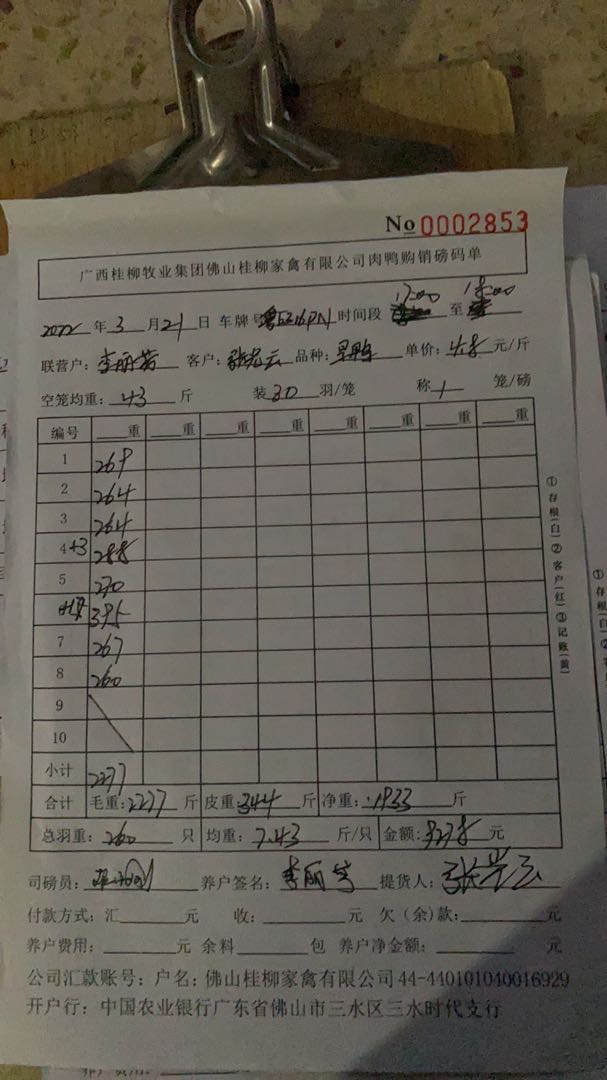 No 0002853
广西桂柳牧业集团佛山桂柳家禽有限公司肉鸭购销磅码单
2022 年 3 月 21 日 车牌号 时间段 17:00 至 18:00
联营户: 李丽芳 客户: 张兴云 品种: 单价: 4.8 元/斤
空笼均重: 43 斤 装 30 羽/笼 称 1 笼/磅
编号 重 重 重 重 重 重 重 重
1 269
2 264
3 264
4 +3 288
5 270
395
7 267
8 260
9
10
小计 2277
合计 毛重: 2277 斤 皮重: 344 斤 净重: 1933 斤
总羽重: 260 只 均重: 7.43 斤/只 金额: 9278 元
司磅员: 养户签名: 李丽芳 提货人: 张兴云
付款方式: 汇 元 收: 元 欠(余)款: 元
养户费用: 元 余料 包 养户净金额: 元
公司汇款账号: 户名: 佛山桂柳家禽有限公司 44-440101040016929
开户行: 中国农业银行广东省佛山市三水区三水时代支行
①存根(白)②客户(红)③记账(黄)